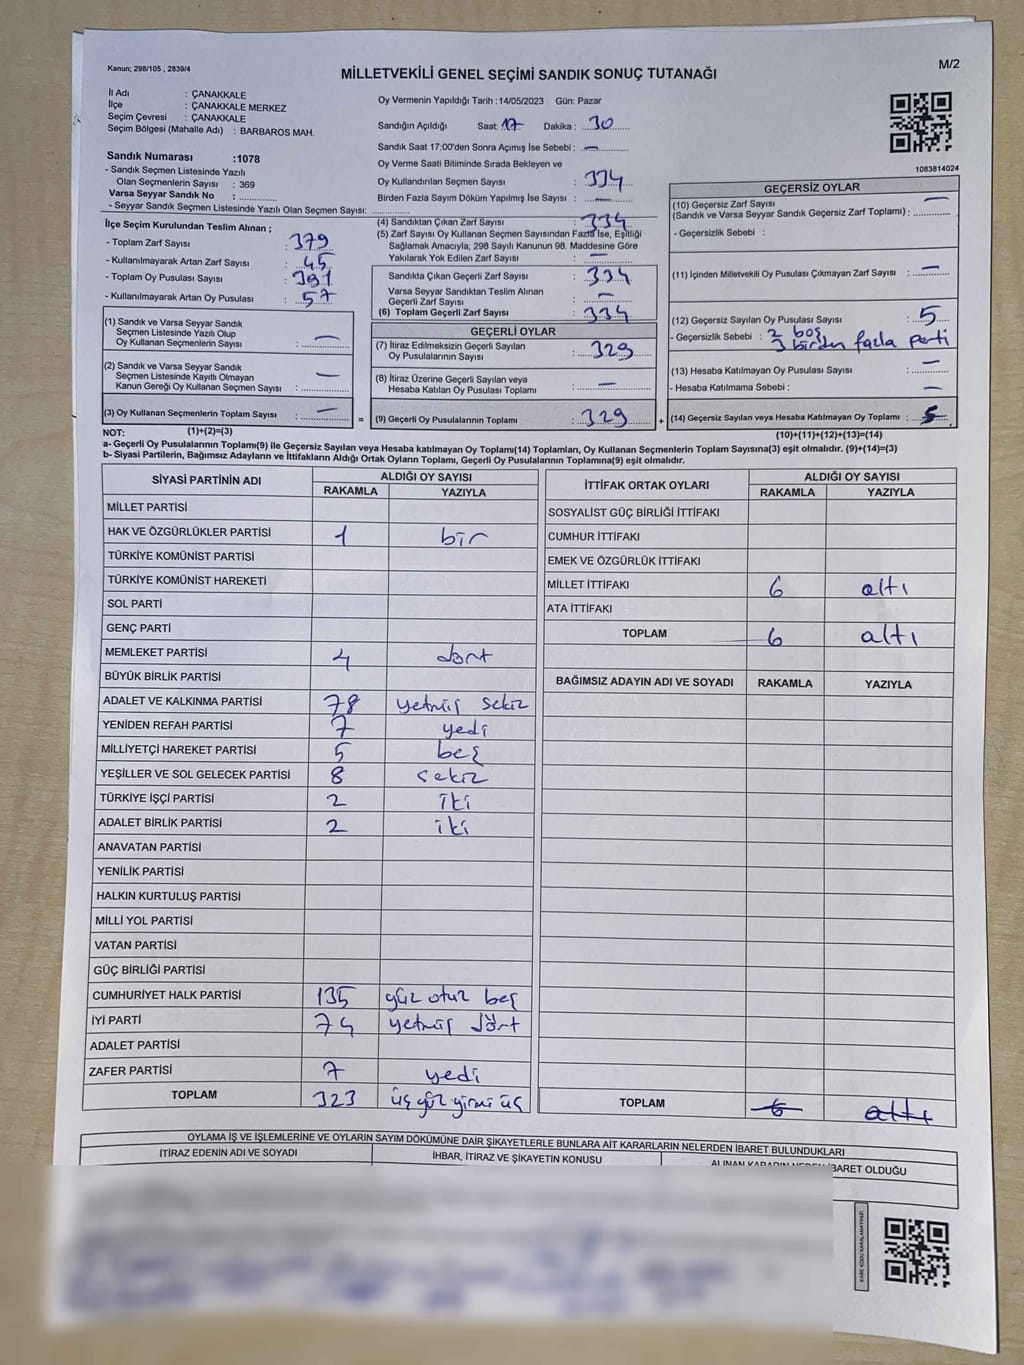 Kanun; 298/105 , 2839/4
M/2
MİLLETVEKİLİ GENEL SEÇİMİ SANDIK SONUÇ TUTANAĞI
İl Adı : ÇANAKKALE
İlçe : ÇANAKKALE MERKEZ
Seçim Çevresi : ÇANAKKALE
Seçim Bölgesi (Mahalle Adı) : BARBAROS MAH.
Sandık Numarası :1078
- Sandık Seçmen Listesinde Yazılı
Olan Seçmenlerin Sayısı : 369
Varsa Seyyar Sandık No :
- Seyyar Sandık Seçmen Listesinde Yazılı Olan Seçmen Sayısı:
İlçe Seçim Kurulundan Teslim Alınan ;
- Toplam Zarf Sayısı : 379
- Kullanılmayarak Artan Zarf Sayısı : 45
- Toplam Oy Pusulası Sayısı : 391
- Kullanılmayarak Artan Oy Pusulası : 57
(1) Sandık ve Varsa Seyyar Sandık
Seçmen Listesinde Yazılı Olup
Oy Kullanan Seçmenlerin Sayısı : —
(2) Sandık ve Varsa Seyyar Sandık
Seçmen Listesinde Kayıtlı Olmayan
Kanun Gereği Oy Kullanan Seçmen Sayısı : —
(3) Oy Kullanan Seçmenlerin Toplam Sayısı : —
Oy Vermenin Yapıldığı Tarih :14/05/2023 Gün: Pazar
Sandığın Açıldığı Saat: 17 Dakika : 30
Sandık Saat 17:00'den Sonra Açımış İse Sebebi : —
Oy Verme Saati Bitiminde Sırada Bekleyen ve
Oy Kullandırılan Seçmen Sayısı : 334
Birden Fazla Sayım Döküm Yapılmış İse Sayısı : —
(4) Sandıktan Çıkan Zarf Sayısı : 334
(5) Zarf Sayısı Oy Kullanan Seçmen Sayısından Fazla İse, Eşitliği
Sağlamak Amacıyla; 298 Sayılı Kanunun 98. Maddesine Göre
Yakılarak Yok Edilen Zarf Sayısı : —
Sandıkta Çıkan Geçerli Zarf Sayısı : 334
Varsa Seyyar Sandıktan Teslim Alınan
Geçerli Zarf Sayısı : —
(6) Toplam Geçerli Zarf Sayısı : 334
GEÇERLİ OYLAR
(7) İtiraz Edilmeksizin Geçerli Sayılan
Oy Pusulalarının Sayısı : 329
(8) İtiraz Üzerine Geçerli Sayılan veya
Hesaba Katılan Oy Pusulası Toplamı : —
= (9) Geçerli Oy Pusulalarının Toplamı : 329
1083814024
GEÇERSİZ OYLAR
(10) Geçersiz Zarf Sayısı —
(Sandık ve Varsa Seyyar Sandık Geçersiz Zarf Toplamı) :
- Geçersizlik Sebebi :
(11) İçinden Milletvekili Oy Pusulası Çıkmayan Zarf Sayısı : —
(12) Geçersiz Sayılan Oy Pusulası Sayısı : 5
- Geçersizlik Sebebi : 2 boş
3 birden fazla parti
(13) Hesaba Katılmayan Oy Pusulası Sayısı : —
- Hesaba Katılmama Sebebi : —
+ (14) Geçersiz Sayılan veya Hesaba Katılmayan Oy Toplamı : 5
NOT: (1)+(2)=(3) (10)+(11)+(12)+(13)=(14)
a- Geçerli Oy Pusulalarının Toplamı(9) ile Geçersiz Sayılan veya Hesaba katılmayan Oy Toplamı(14) Toplamları, Oy Kullanan Seçmenlerin Toplam Sayısına(3) eşit olmalıdır. (9)+(14)=(3)
b- Siyasi Partilerin, Bağımsız Adayların ve İttifakların Aldığı Ortak Oyların Toplamı, Geçerli Oy Pusulalarının Toplamına(9) eşit olmalıdır.
SİYASİ PARTİNİN ADI ALDIĞI OY SAYISI
RAKAMLA YAZIYLA
MİLLET PARTİSİ
HAK VE ÖZGÜRLÜKLER PARTİSİ 1 bir
TÜRKİYE KOMÜNİST PARTİSİ
TÜRKİYE KOMÜNİST HAREKETİ
SOL PARTİ
GENÇ PARTİ
MEMLEKET PARTİSİ 4 dört
BÜYÜK BİRLİK PARTİSİ
ADALET VE KALKINMA PARTİSİ 78 yetmiş sekiz
YENİDEN REFAH PARTİSİ 7 yedi
MİLLİYETÇİ HAREKET PARTİSİ 5 beş
YEŞİLLER VE SOL GELECEK PARTİSİ 8 sekiz
TÜRKİYE İŞÇİ PARTİSİ 2 iki
ADALET BİRLİK PARTİSİ 2 iki
ANAVATAN PARTİSİ
YENİLİK PARTİSİ
HALKIN KURTULUŞ PARTİSİ
MİLLİ YOL PARTİSİ
VATAN PARTİSİ
GÜÇ BİRLİĞİ PARTİSİ
CUMHURİYET HALK PARTİSİ 135 yüz otuz beş
İYİ PARTİ 74 yetmiş dört
ADALET PARTİSİ
ZAFER PARTİSİ 7 yedi
TOPLAM 323 üç yüz yirmi üç
İTTİFAK ORTAK OYLARI ALDIĞI OY SAYISI
RAKAMLA YAZIYLA
SOSYALİST GÜÇ BİRLİĞİ İTTİFAKI
CUMHUR İTTİFAKI
EMEK VE ÖZGÜRLÜK İTTİFAKI
MİLLET İTTİFAKI 6 altı
ATA İTTİFAKI
TOPLAM 6 altı
BAĞIMSIZ ADAYIN ADI VE SOYADI RAKAMLA YAZIYLA
TOPLAM 6 altı
OYLAMA İŞ VE İŞLEMLERİNE VE OYLARIN SAYIM DÖKÜMÜNE DAİR ŞİKAYETLERLE BUNLARA AİT KARARLARIN NELERDEN İBARET BULUNDUKLARI
İTİRAZ EDENİN ADI VE SOYADI İHBAR, İTİRAZ VE ŞİKAYETİN KONUSU ALINAN KARARIN NEDEN İBARET OLDUĞU
KARE KODU KARALAMAYINIZ!